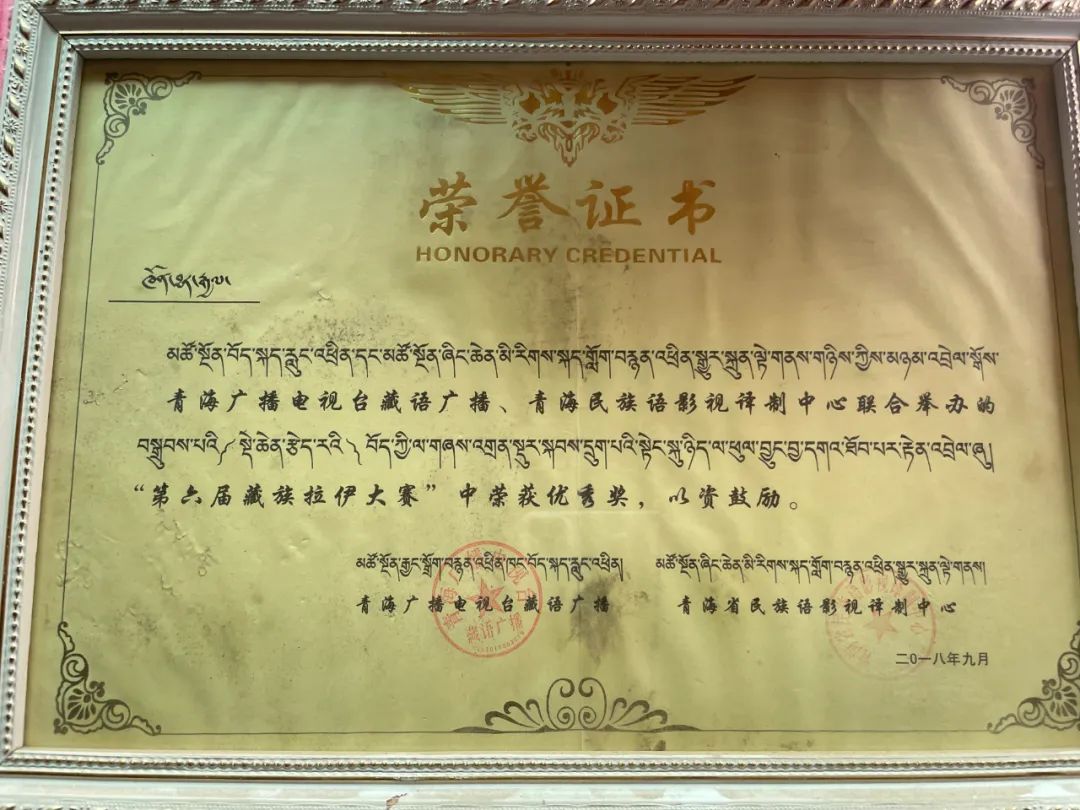 荣誉证书
HONORARY CREDENTIAL
མཚོ་སྔོན་བོད་སྐད་རླུང་འཕྲིན་དང་མཚོ་སྔོན་ཞིང་ཆེན་མི་རིགས་སྐད་གློག་བརྙན་འཕྲིན་སྒྱུར་སྐྲུན་ལྟེ་གནས་གཉིས་ཀྱིས་མཉམ་འབྲེལ་སྒོས་
青海广播电视台藏语广播、青海民族语影视译制中心联合举办的
བསྒྲུབས་པའི་༼སྡེ་ཆེན་རྩེད་རའི་༽བོད་ཀྱི་ལ་གཞས་འགྲན་སྡུར་སྐབས་དྲུག་པའི་སྟེང་སྐུ་ཉིད་ལ་ཕུལ་བྱུང་བྱ་དགའ་ཐོབ་པར་རྟེན་འབྲེལ་ཞུ།
“第六届藏族拉伊大赛”中荣获优秀奖，以资鼓励。
མཚོ་སྔོན་རྒྱང་སྒྲོག་བརྙན་འཕྲིན་ཁང་བོད་སྐད་རླུང་འཕྲིན། མཚོ་སྔོན་ཞིང་ཆེན་མི་རིགས་སྐད་གློག་བརྙན་འཕྲིན་སྒྱུར་སྐྲུན་ལྟེ་གནས།
青海广播电视台藏语广播 青海省民族语影视译制中心
藏语广播
二0一八年九月